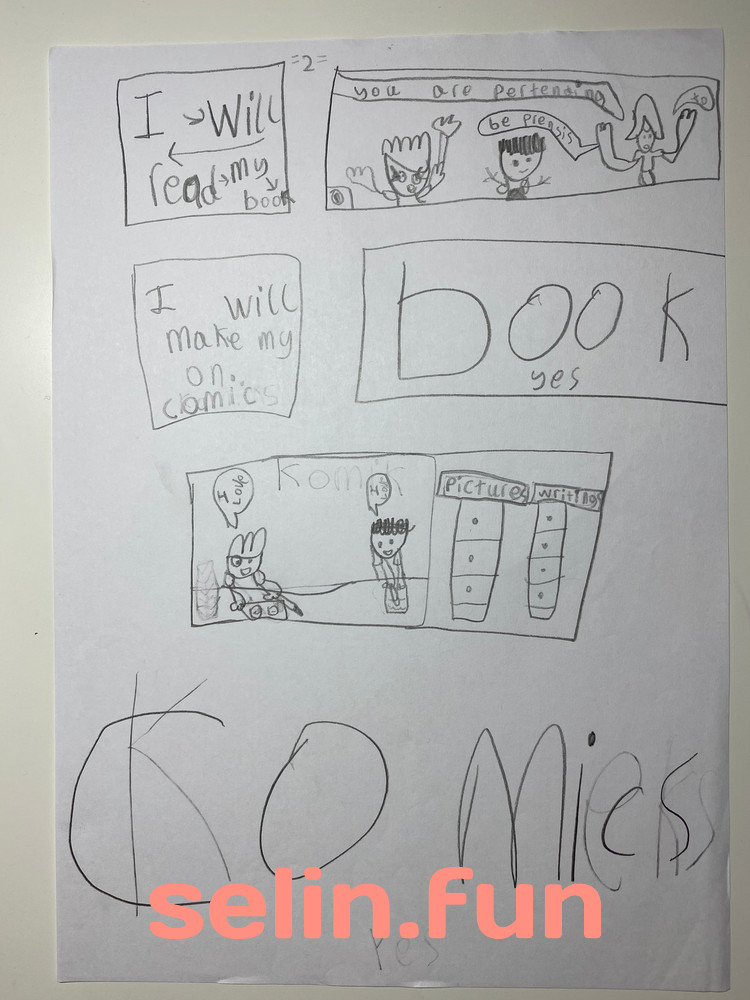 =2=
I Will
read my
book
you are pertending
be prensis
to
I will
make my
on.
comics
book
yes
Komik
I
Love
Pictures
writings
KOMics
selin.fun
Yes